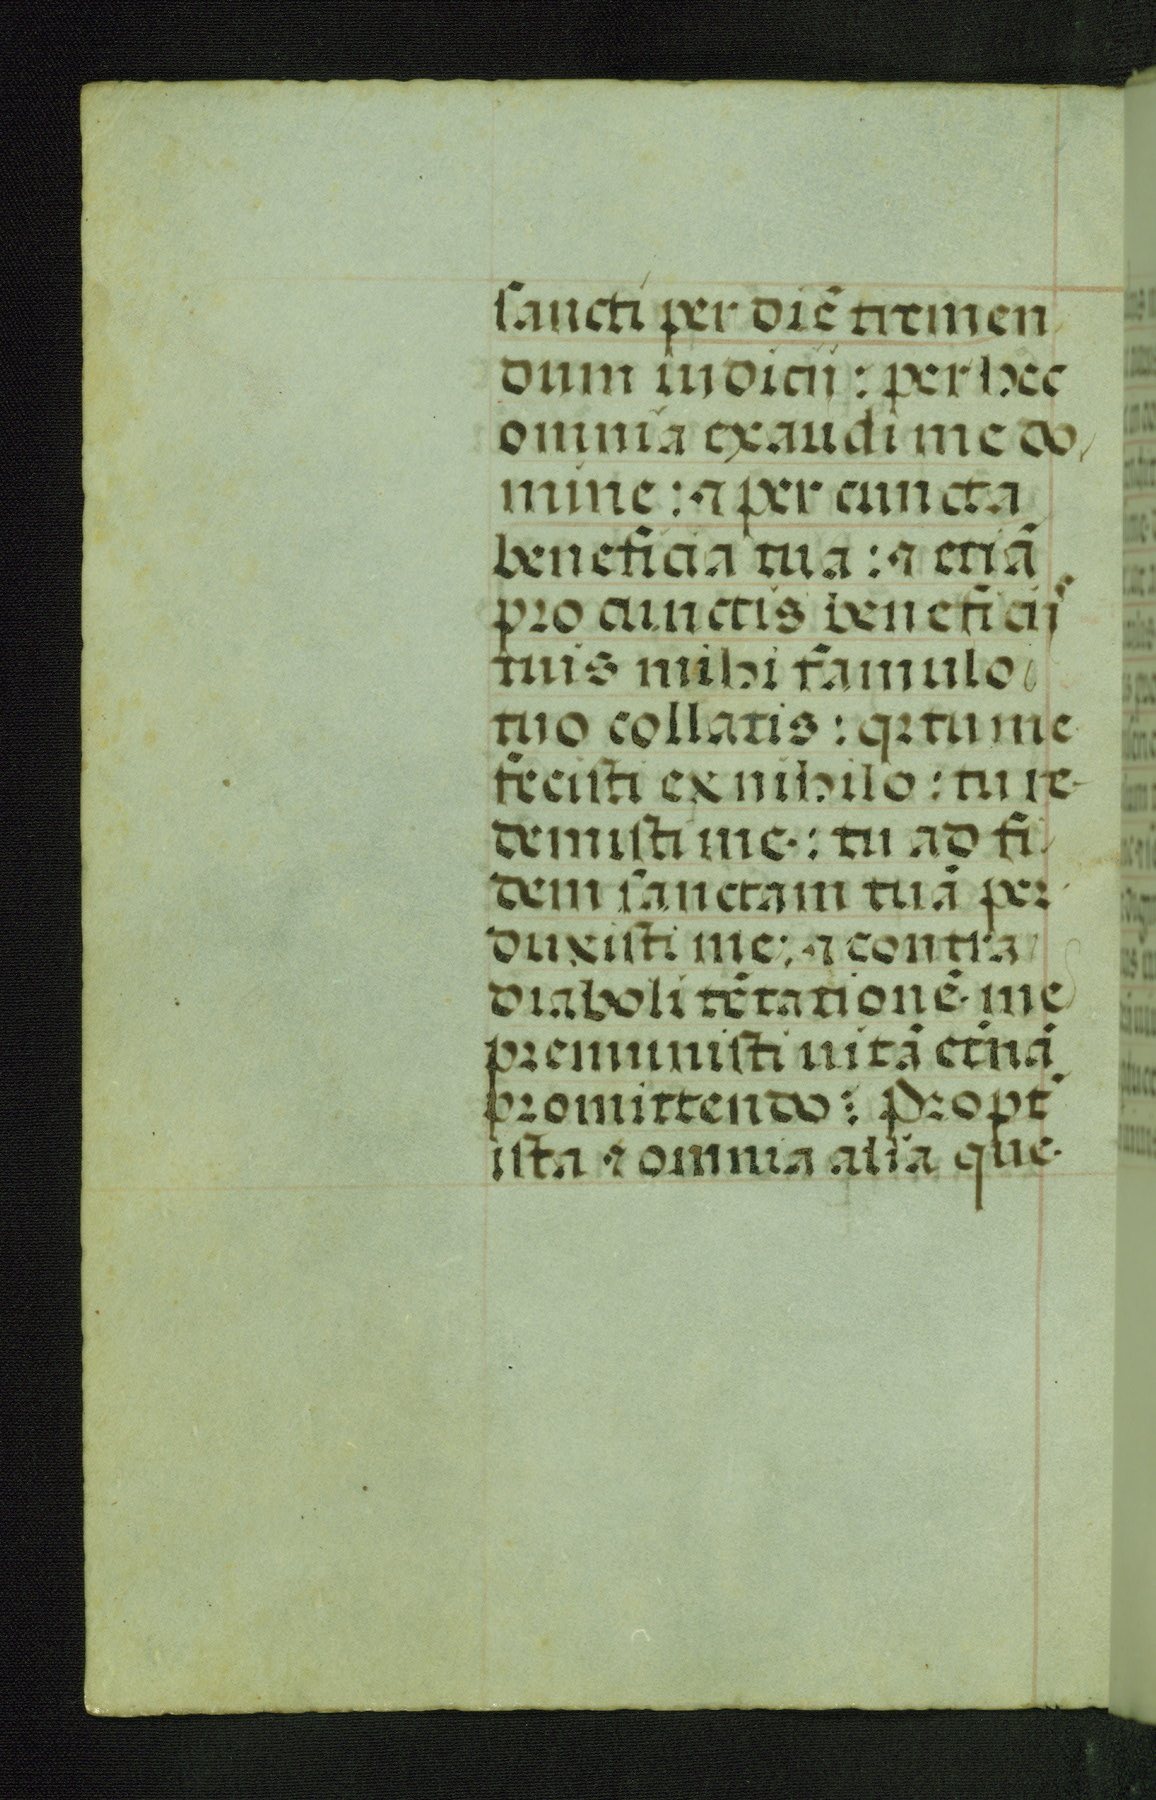 sancti per diē tremen
dum iudicii : per hec
omnia exaudi me do
mine : ⁊ per cuncta
beneficia tua : ⁊ etiā
pro cunctis beneficiis
tuis mihi famulo
tuo collatis : qꝛ tu me
fecisti ex nihilo : tu re-
demisti me : tu ad fi
dem sanctam tuā per
duxisti me : ⁊ contra
diaboli tētationē me
premunisti uitā et̄nā
promittendo : Propt̄
ista ⁊ omnia alia que